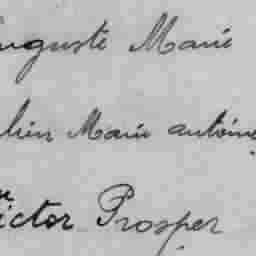 uguste Marie
lien Marie antoine
ictor Prosper